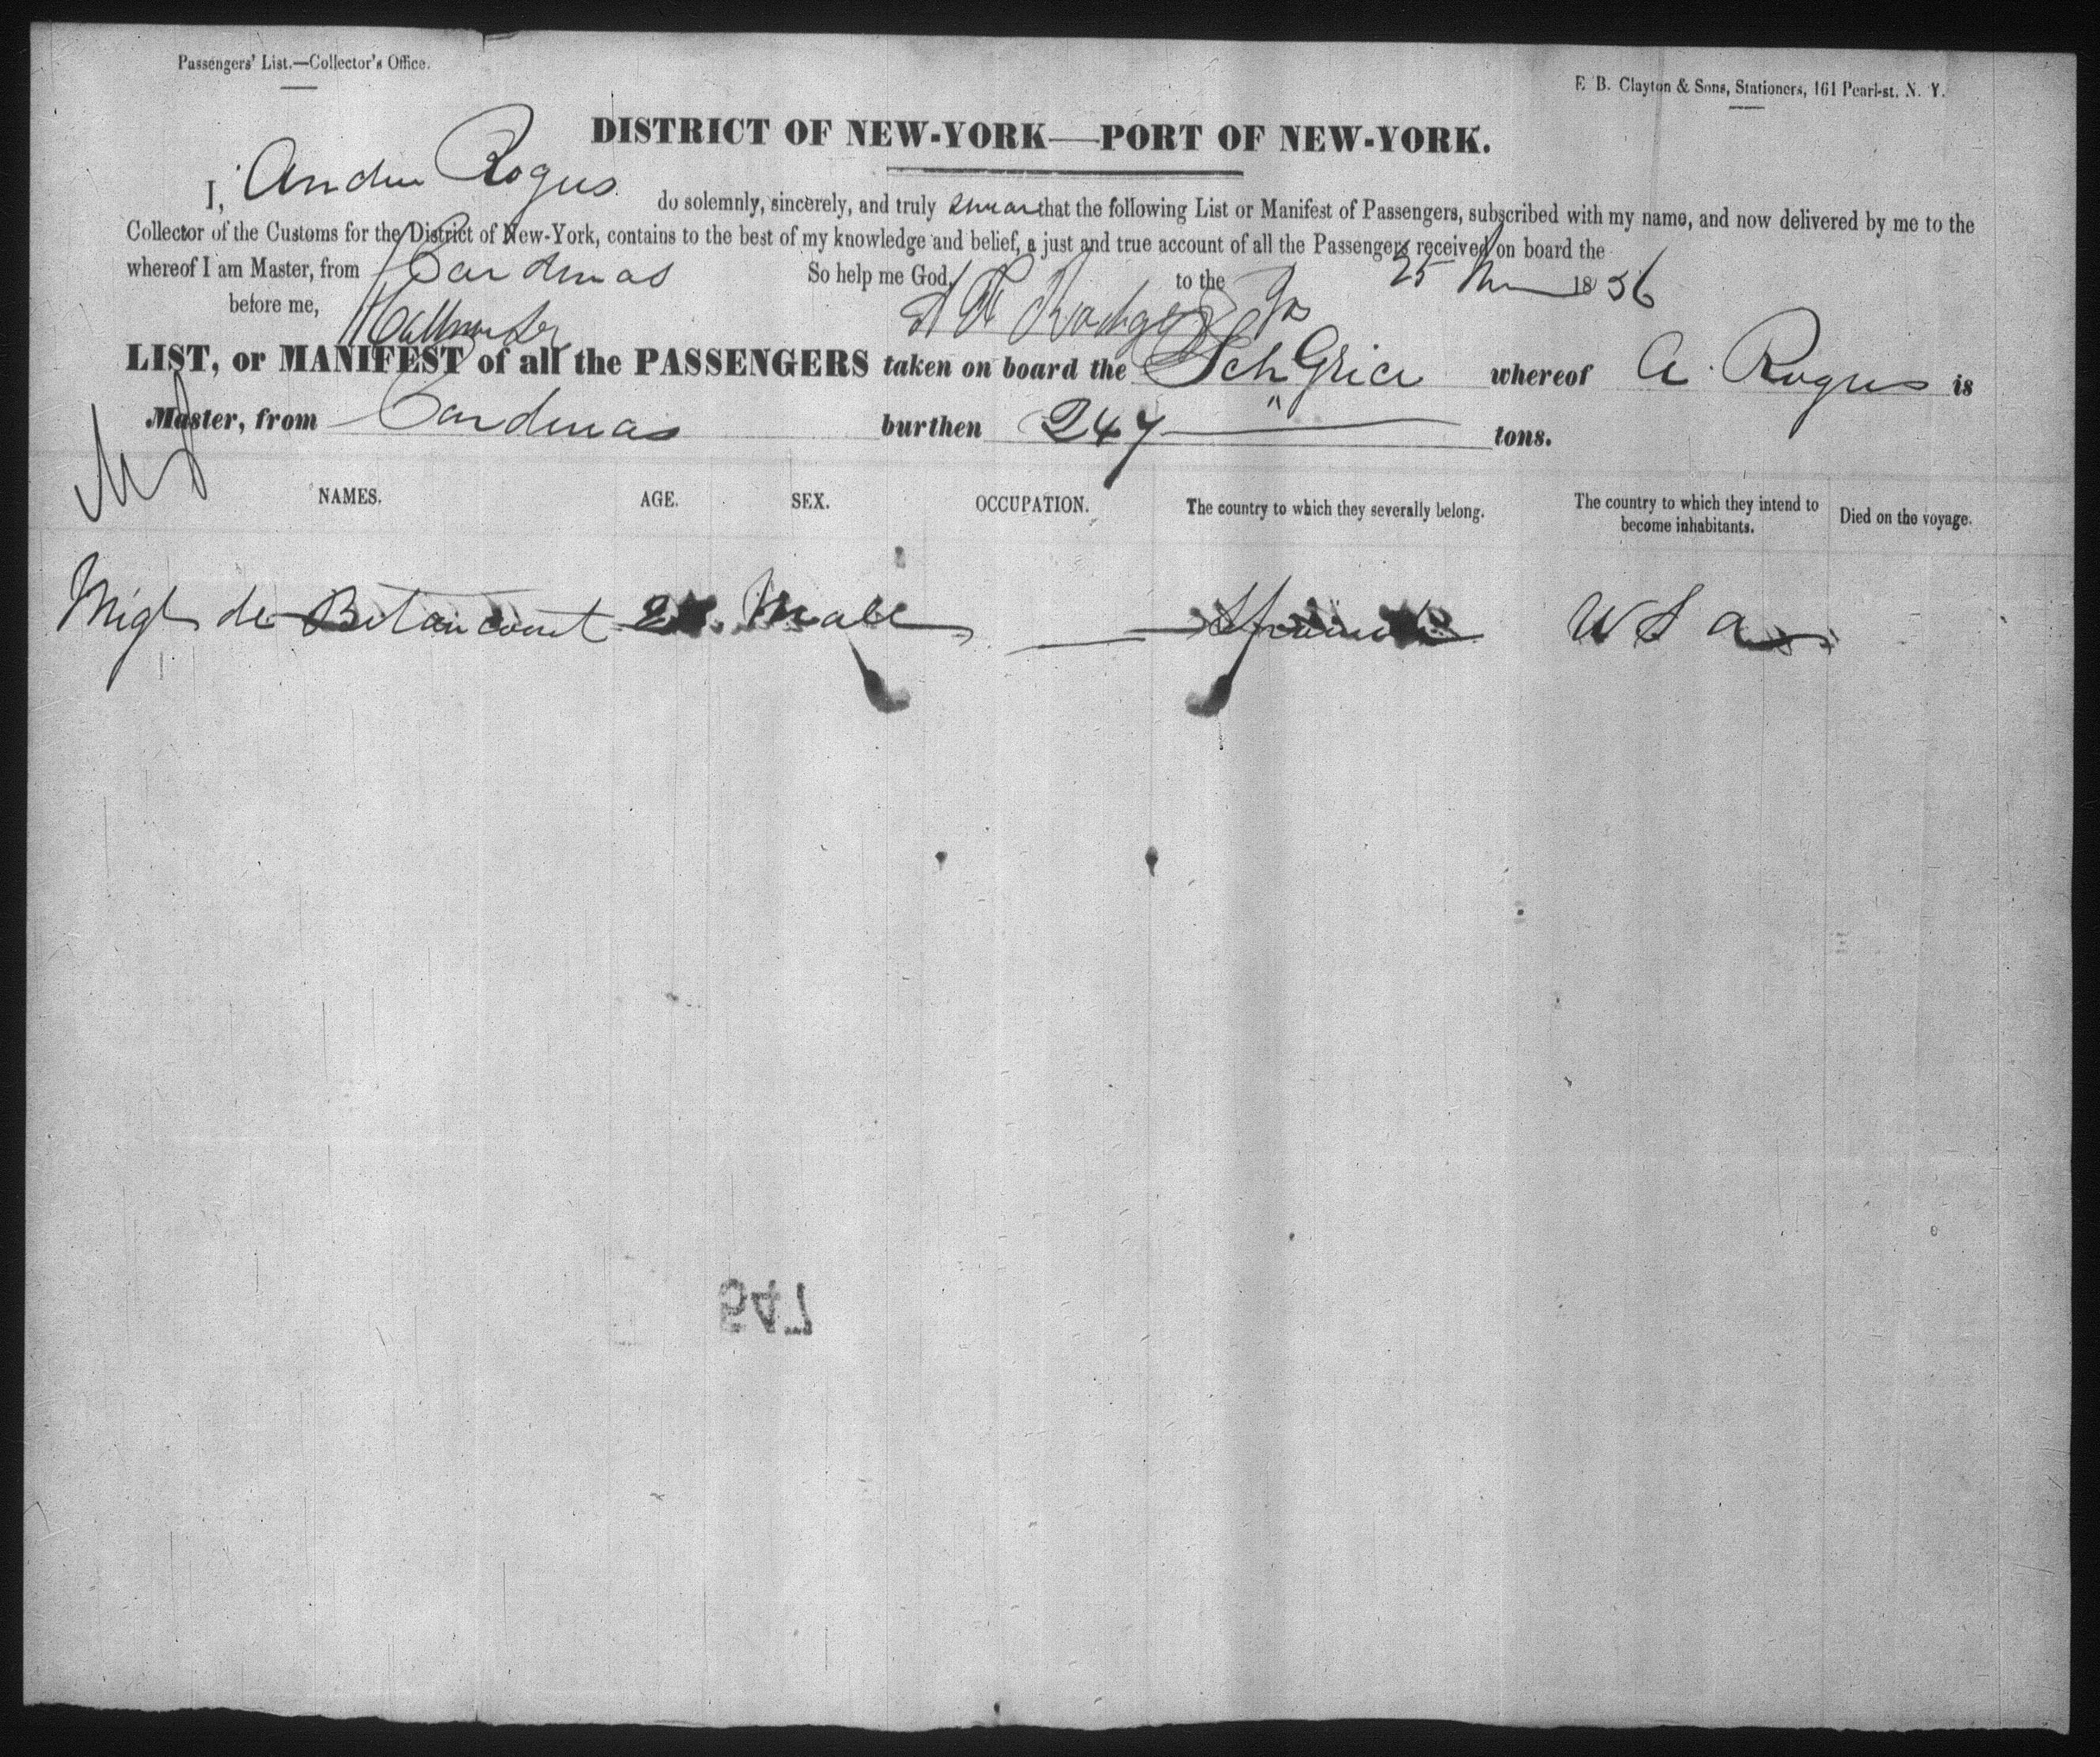 Passengers' List.—Collector's Office.
E. B. Clayton & Sons, Stationers, 161 Pearl-st. N. Y.
DISTRICT OF NEW-YORK—PORT OF NEW-YORK.
I, Andrew Rogus do solemnly, sincerely, and truly swear that the following List or Manifest of Passengers, subscribed with my name, and now delivered by me to the
Collector of the Customs for the District of New-York, contains to the best of my knowledge and belief, a just and true account of all the Passengers received on board the
whereof I am Master, from Cardenas So help me God, to the 25 1856
before me,
LIST, or MANIFEST of all the PASSENGERS taken on board the Sch Grice whereof A. Rogus is
Master, from Cardenas burthen 247 tons.
NAMES. AGE. SEX. OCCUPATION. The country to which they severally belong. The country to which they intend to become inhabitants. Died on the voyage.
Migl de Betancourt Male U S a
547